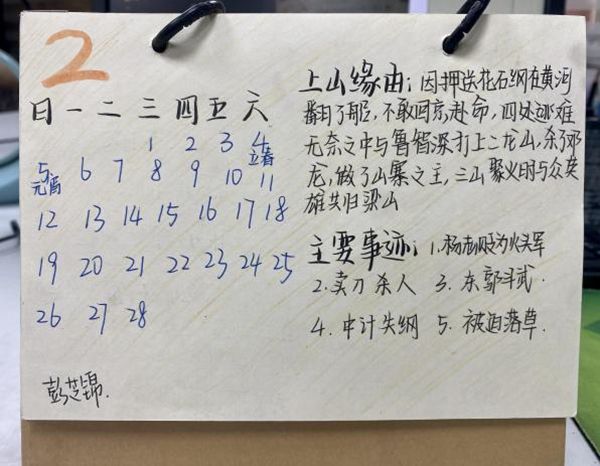 2
日 一 二 三 四 五 六
1 2 3 4
立春
5 6 7 8 9 10 11
元宵
12 13 14 15 16 17 18
19 20 21 22 23 24 25
26 27 28
彭芝锦.
上山缘由：因押送花石纲在黄河
翻了船，不敢回京赴命，四处逃难
无奈之中与鲁智深打上二龙山，杀了邓
龙，做了山寨之主，三山聚义时与众英
雄共归梁山
主要事迹：1.杨志贬为火头军
2.卖刀杀人 3.东郭斗武.
4.中计失纲 5.被迫落草.